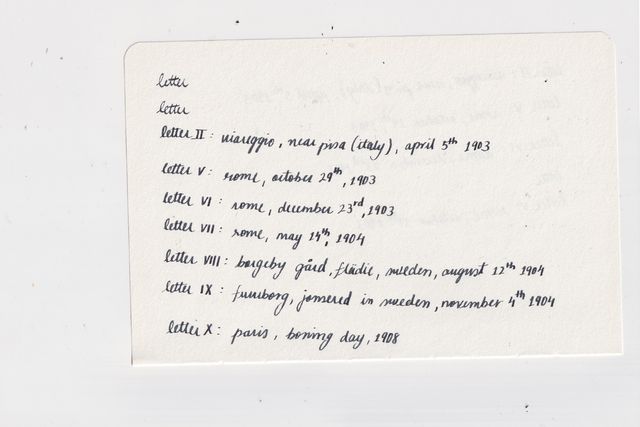 letter
letter
letter II: viareggio, near pisa (italy), april 5th 1903
letter V: rome, october 29th, 1903
letter VI: rome, december 23rd, 1903
letter VII: rome, may 14th, 1904
letter VIII: borgeby gård, flädie, sweden, august 12th 1904
letter IX: furuborg, jonsered in sweden, november 4th 1904
letter X: paris, boxing day, 1908